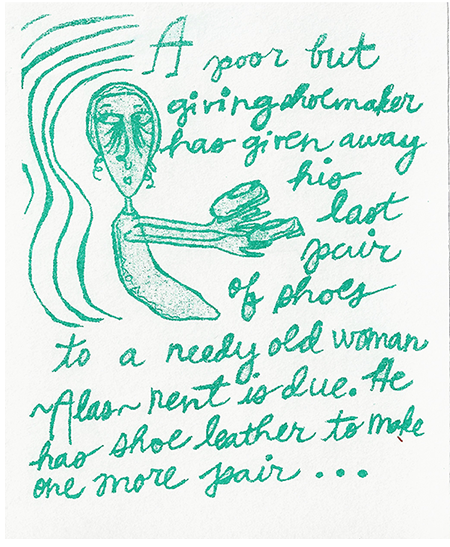 A poor but
giving shoemaker
has given away
his
last
pair
of shoes
to a needy old woman
~Alas~ rent is due. He
has shoe leather to make
one more pair...